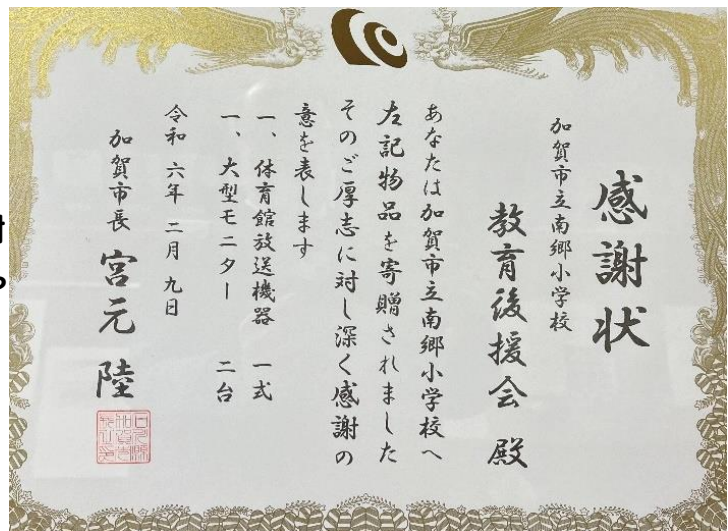 感謝状
加賀市立南郷小学校
教育後援会 殿
あなたは加賀市立南郷小学校へ
左記物品を寄贈されました
そのご厚志に対し深く感謝の
意を表します
一、体育館放送機器 一式
一、大型モニター 二台
令和六年二月九日
加賀市長 宮元 陸